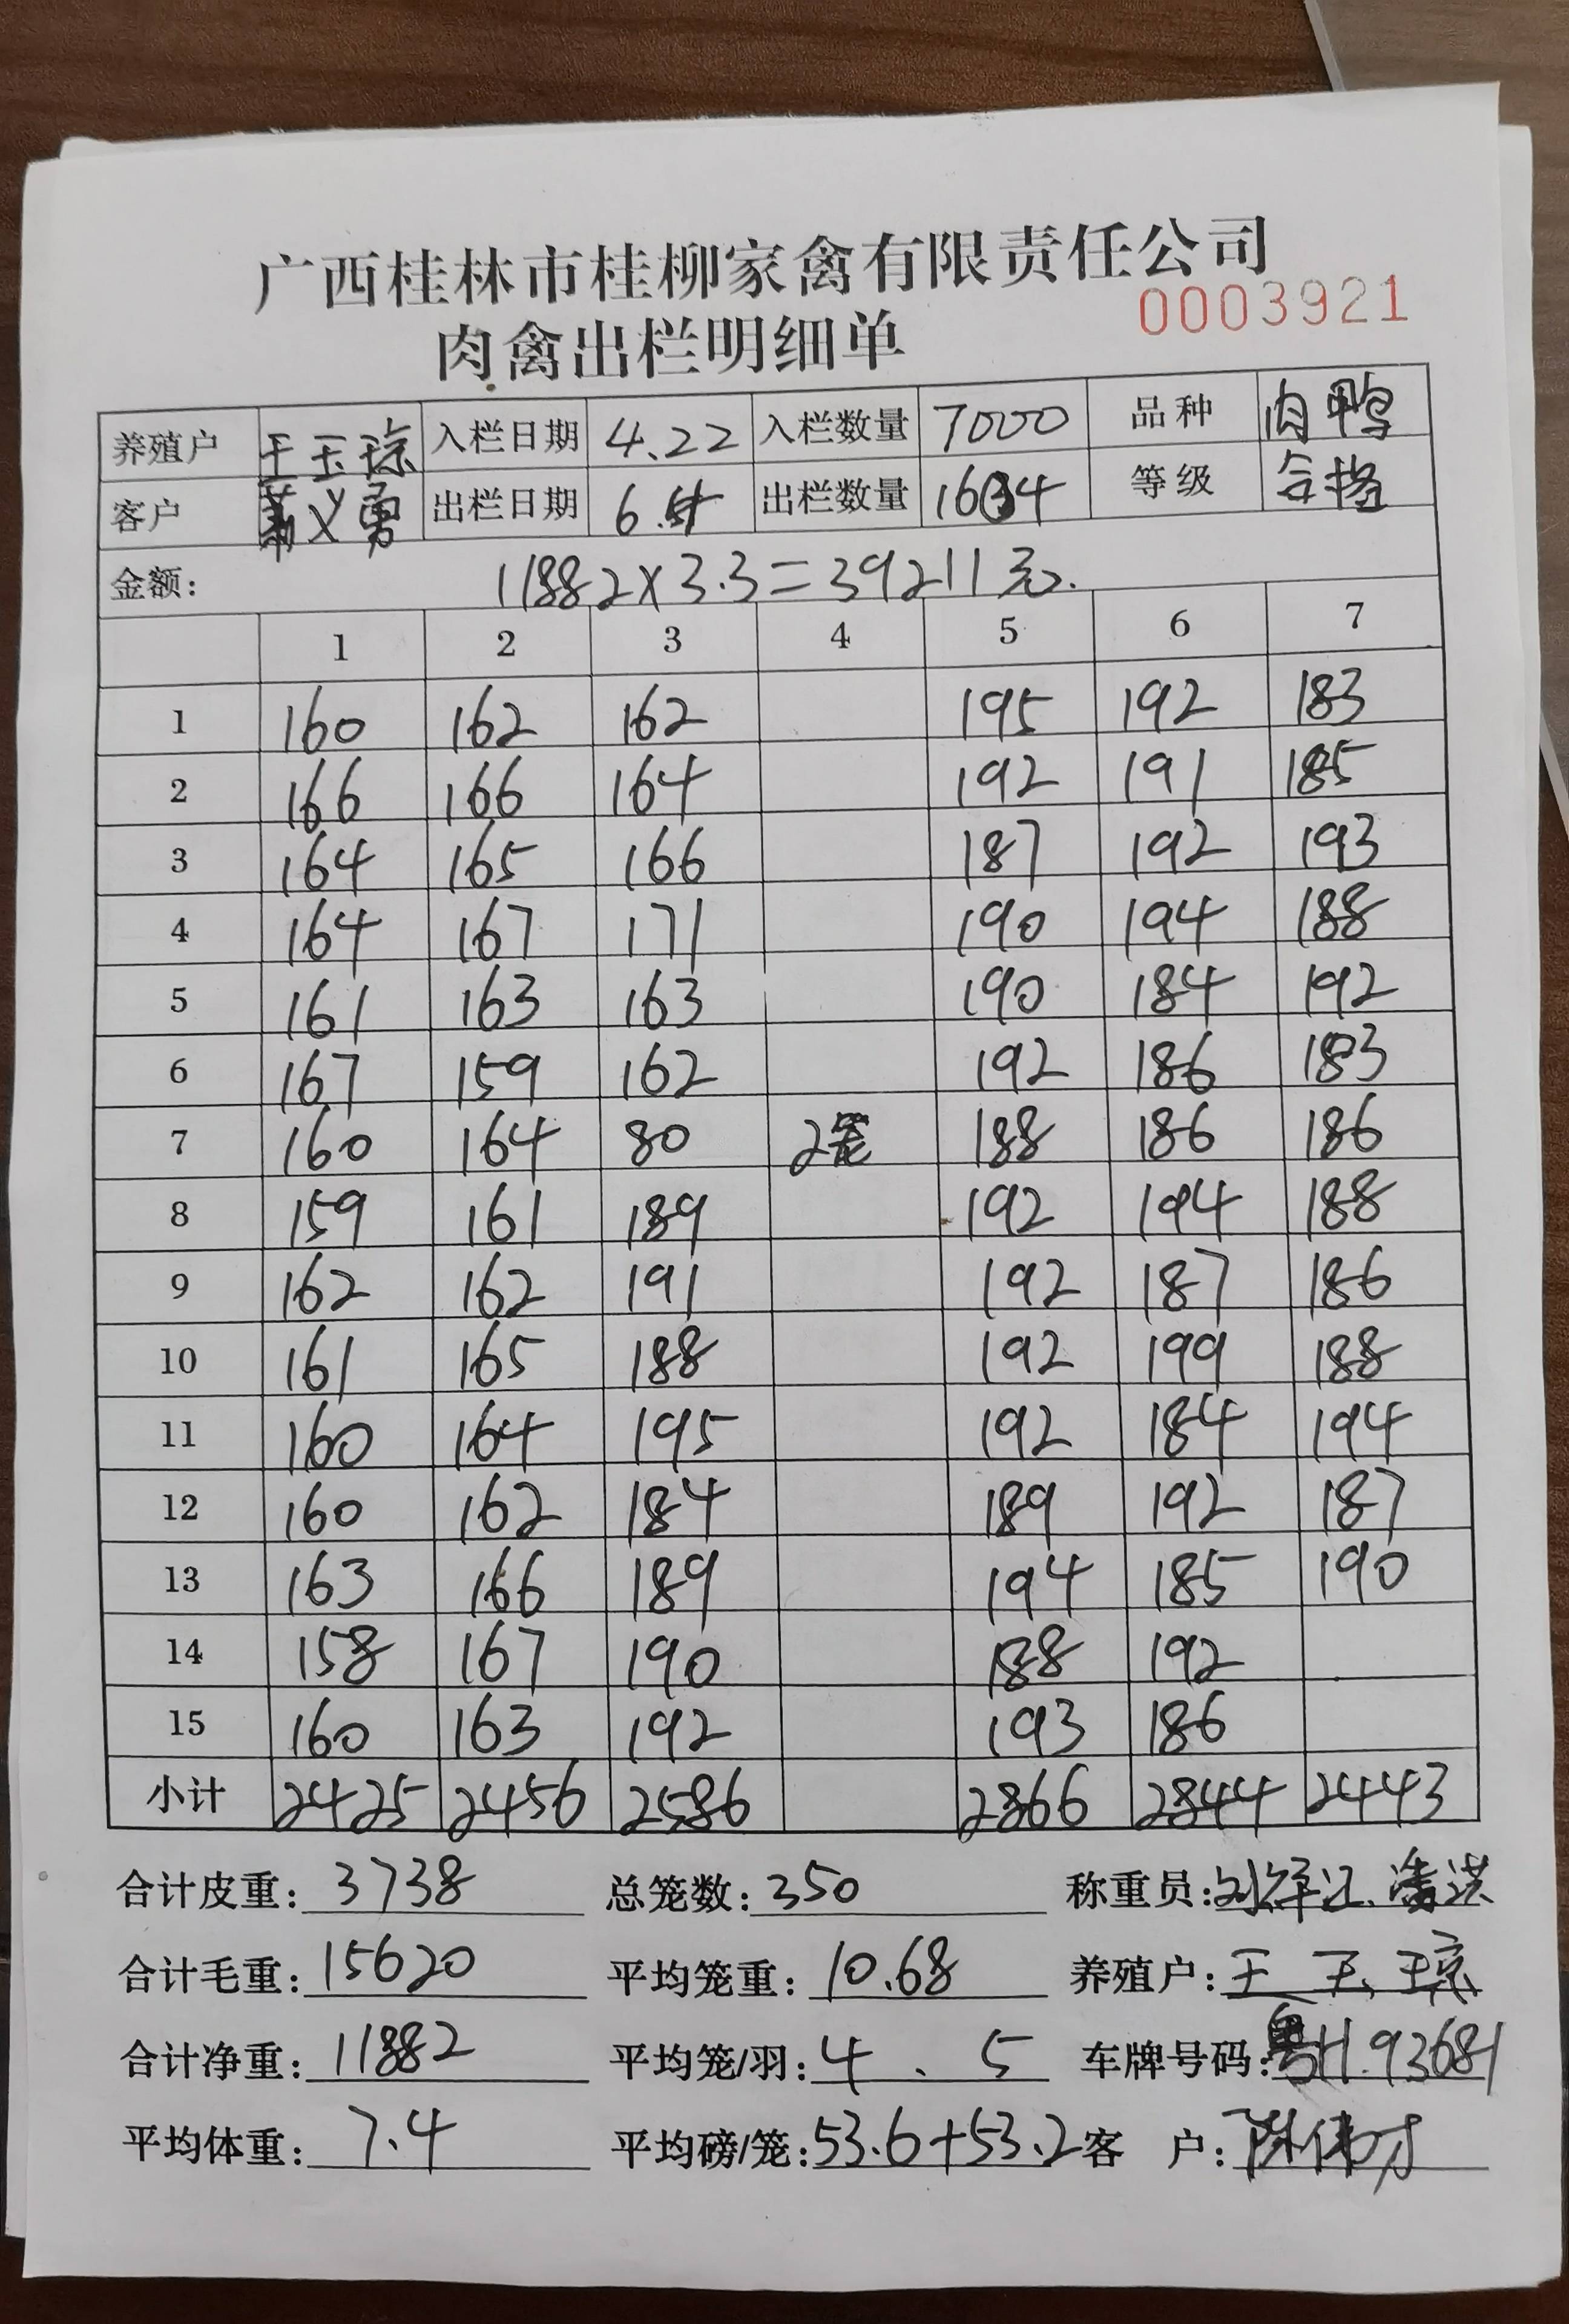 广西桂林市桂柳家禽有限责任公司
0003921
肉禽出栏明细单
养殖户 王玉琼 入栏日期 4.22 入栏数量 7000 品种 肉鸭
客户 义勇 出栏日期 6. 出栏数量 1634 等级 合格
金额: 11882×3.3=39211元.
1 2 3 4 5 6 7
1 160 162 162 195 192 183
2 166 166 164 192 191 185
3 164 165 166 187 192 193
4 164 167 171 190 194 188
5 161 163 163 190 184 192
6 167 159 162 192 186 183
7 160 164 80 2笼 188 186 186
8 159 161 189 192 194 188
9 162 162 191 192 187 186
10 161 165 188 192 199 188
11 160 164 195 192 184 194
12 160 162 184 189 192 187
13 163 166 189 194 185 190
14 158 167 190 188 192
15 160 163 192 193 186
小计 2425 2456 2586 2866 2844 2443
合计皮重: 3738 总笼数: 350 称重员:
合计毛重: 15620 平均笼重: 10.68 养殖户: 王玉琼
合计净重: 11882 平均笼/羽: 4.5 车牌号码: 粤H.93681
平均体重: 7.4 平均磅/笼: 53.6+53.2 客户: 陈伟才